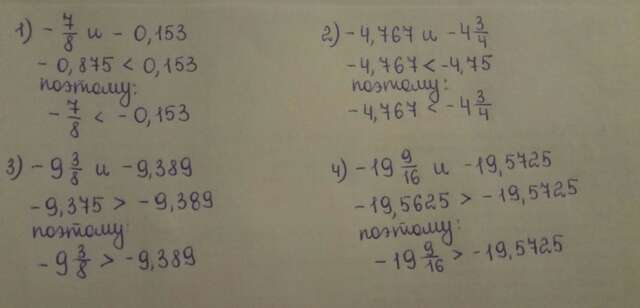 1) - 7/8 и - 0,153
- 0,875 < 0,153
поэтому:
- 7/8 < - 0,153
2) -4,767 и -4 3/4
-4,767 < -4,75
поэтому:
-4,767 < -4 3/4
3) -9 3/8 и -9,389
-9,375 > -9,389
поэтому:
-9 3/8 > -9,389
4) -19 9/16 и -19,5725
-19,5625 > -19,5725
поэтому:
-19 9/16 > -19,5725